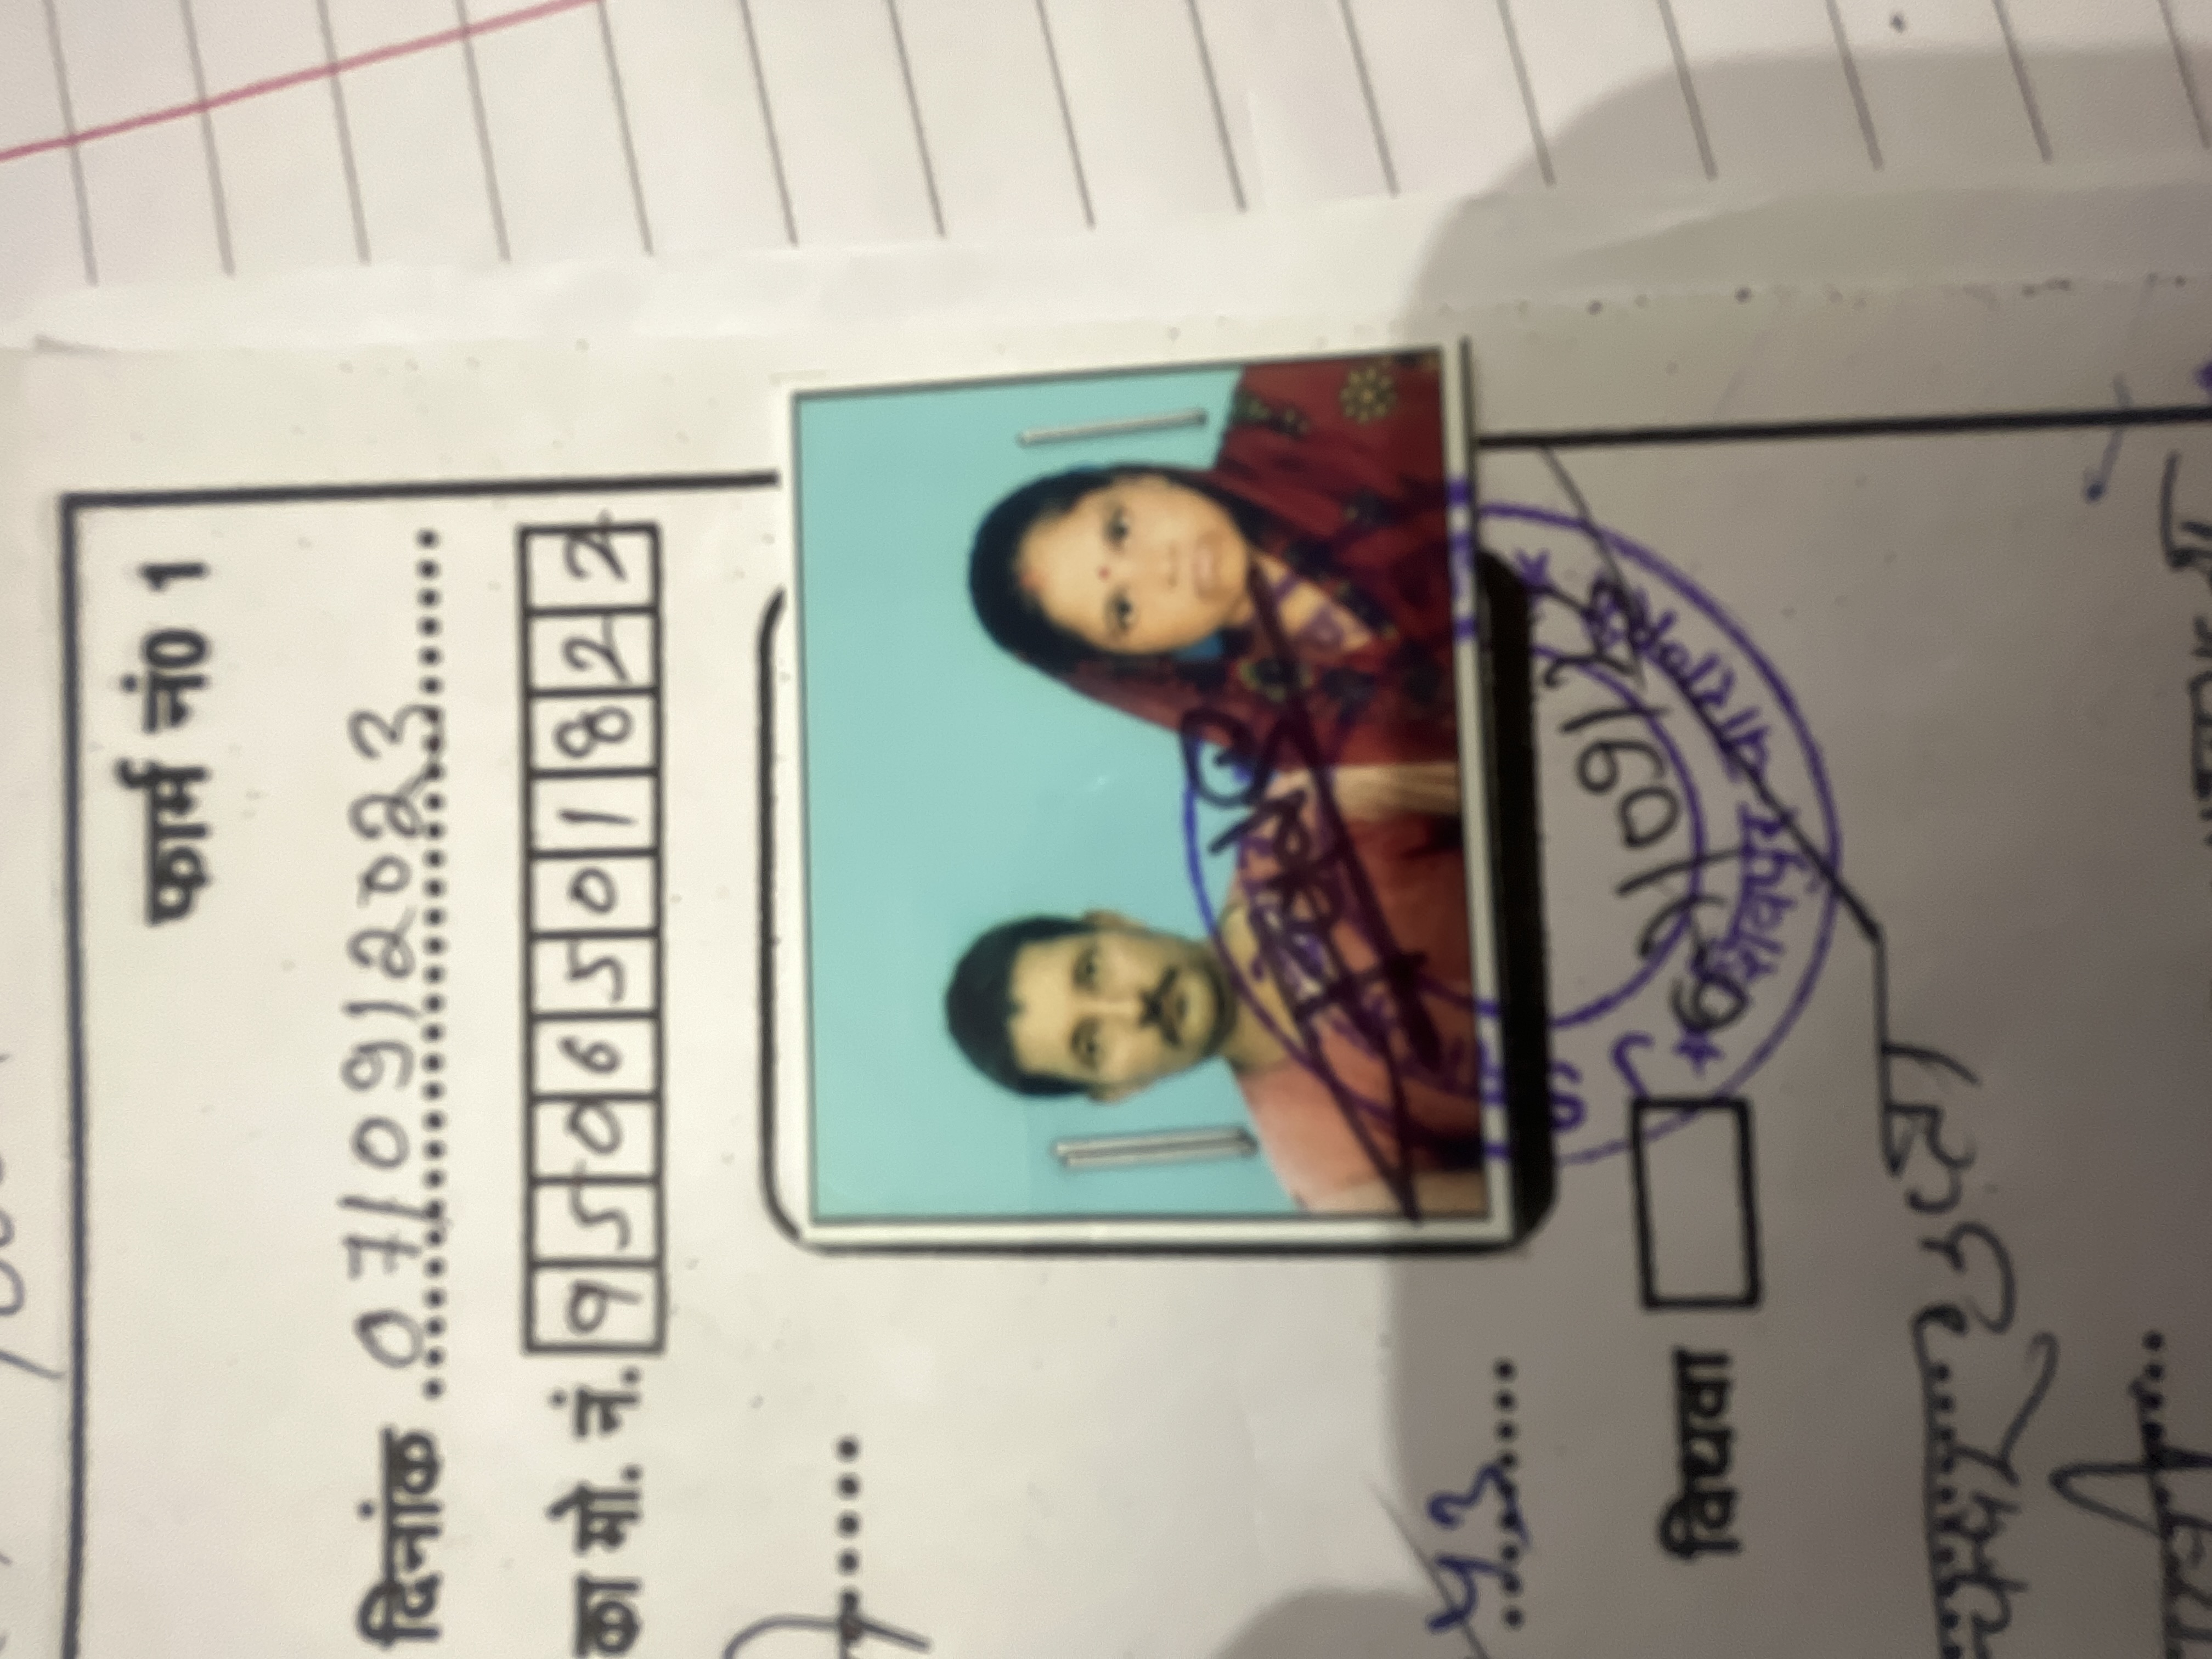 फार्म नं0 1
दिनांक 07/09/2023
का मो. नं. 9506501822
43
विधवा
07/09/23
शिवपुर-वाराणसी
गुप्ता